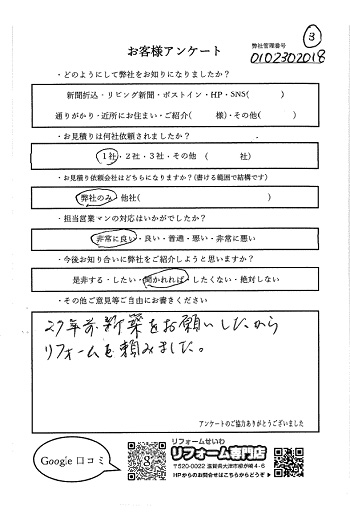 ③
お客様アンケート
弊社管理番号
0102302018
・どのようにして弊社をお知りになりましたか？
新聞折込・リビング新聞・ポストイン・HP・SNS(　　　)
通りがかり・近所にお住まい・ご紹介(　　　様)・その他(　　　)
・お見積りは何社依頼されましたか？
1社・2社・3社・その他　(　　　社)
・お見積り依頼会社はどちらになりますか？(書ける範囲で結構です)
弊社のみ・他社(　　　)
・担当営業マンの対応はいかがでしたか？
非常に良い・良い・普通・悪い・非常に悪い
・今後お知り合いに弊社をご紹介しようと思いますか？
是非する・したい・聞かれれば・したくない・絶対しない
・その他ご意見等ご自由にお書きください
27年前新築をお願いしたから
リフォームも頼みました。
アンケートのご協力ありがとうございました
Google 口コミ
リフォームせいわ
リフォーム専門店
〒520-0022 滋賀県大津市柳が崎4-6
HPからのお問合せはこちらからどうぞ▶